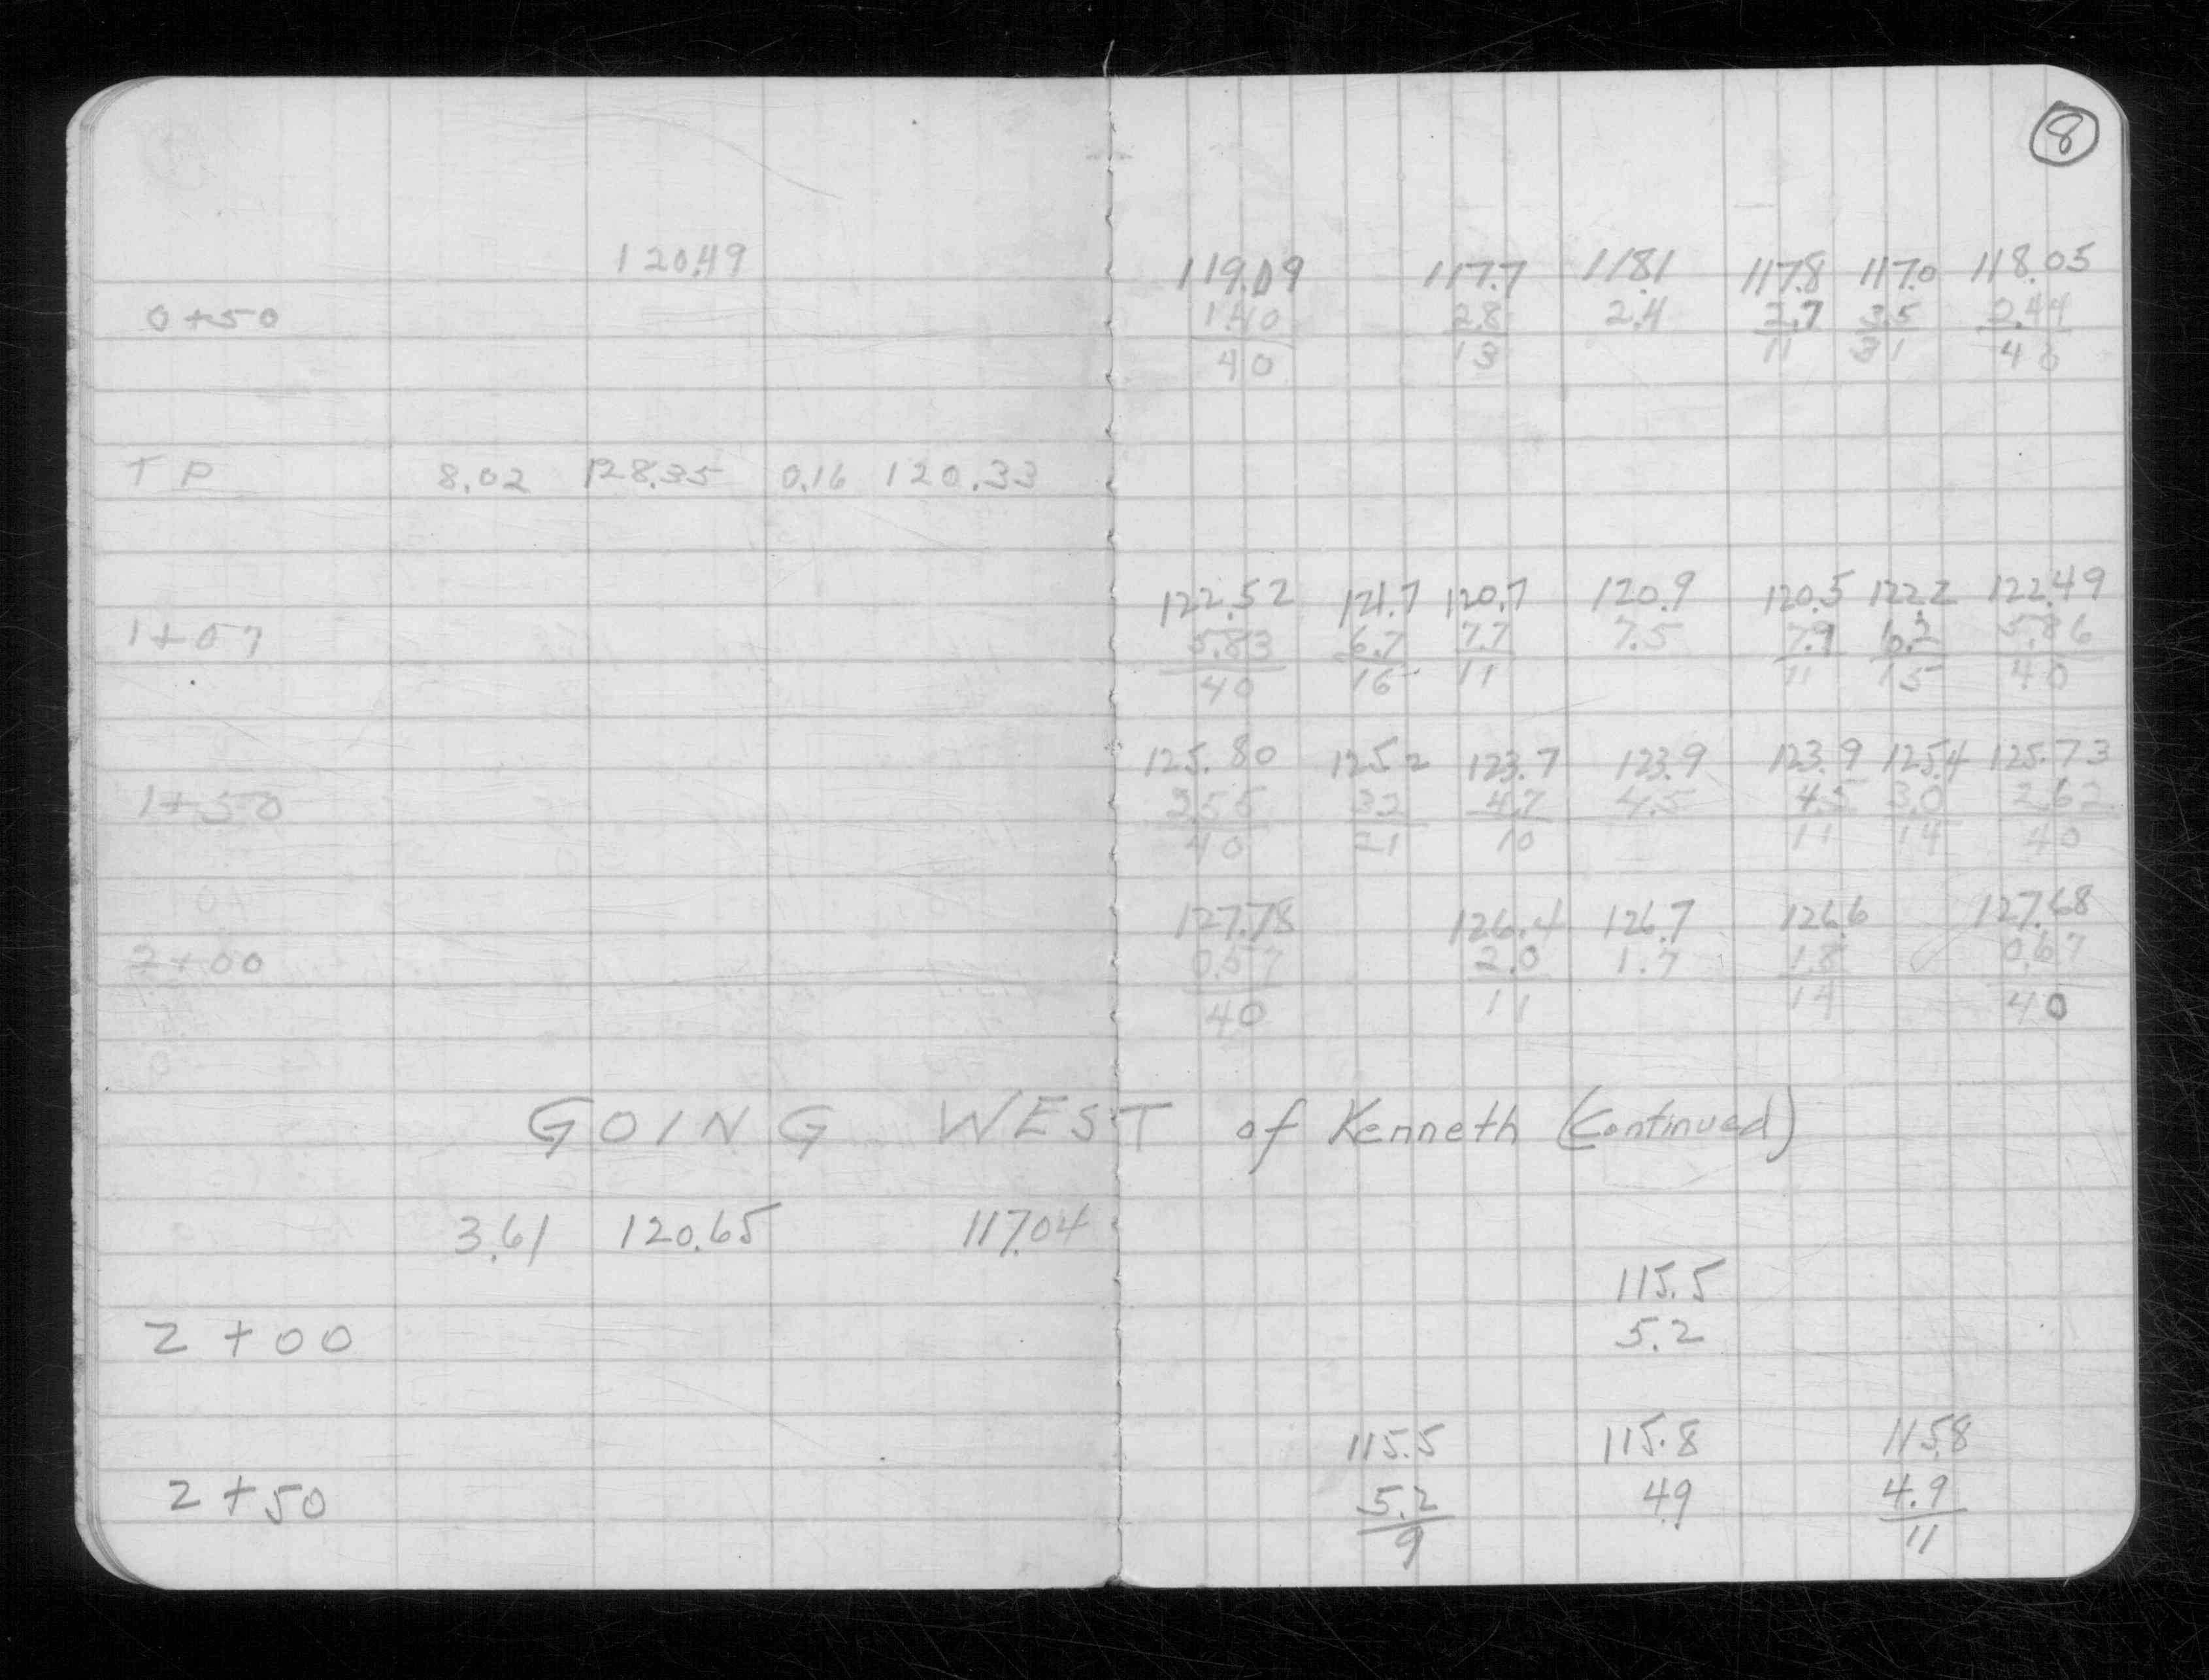 8
120.49 119.09 117.7 118.1 117.8 117.0 118.05
0+50 1.40 2.8 2.4 2.7 3.5 2.44
40 13 11 31 40
TP 8.02 128.35 0.16 120.33
122.52 121.7 120.7 120.9 120.5 122.2 122.49
1+07 5.83 6.7 7.7 7.5 7.9 6.2 5.86
40 16 11 11 15 40
125.80 125.2 123.7 123.9 123.9 125.4 125.73
1+50 2.55 3.2 4.7 4.5 4.5 3.0 2.62
40 21 10 11 14 40
127.78 126.4 126.7 126.6 127.68
2+00 0.57 2.0 1.7 1.8 0.67
40 11 14 40
GOING WEST of Kenneth (Continued)
3.61 120.65 117.04
115.5
2+00 5.2
115.5 115.8 115.8
2+50 5.2 4.9 4.9
9 11